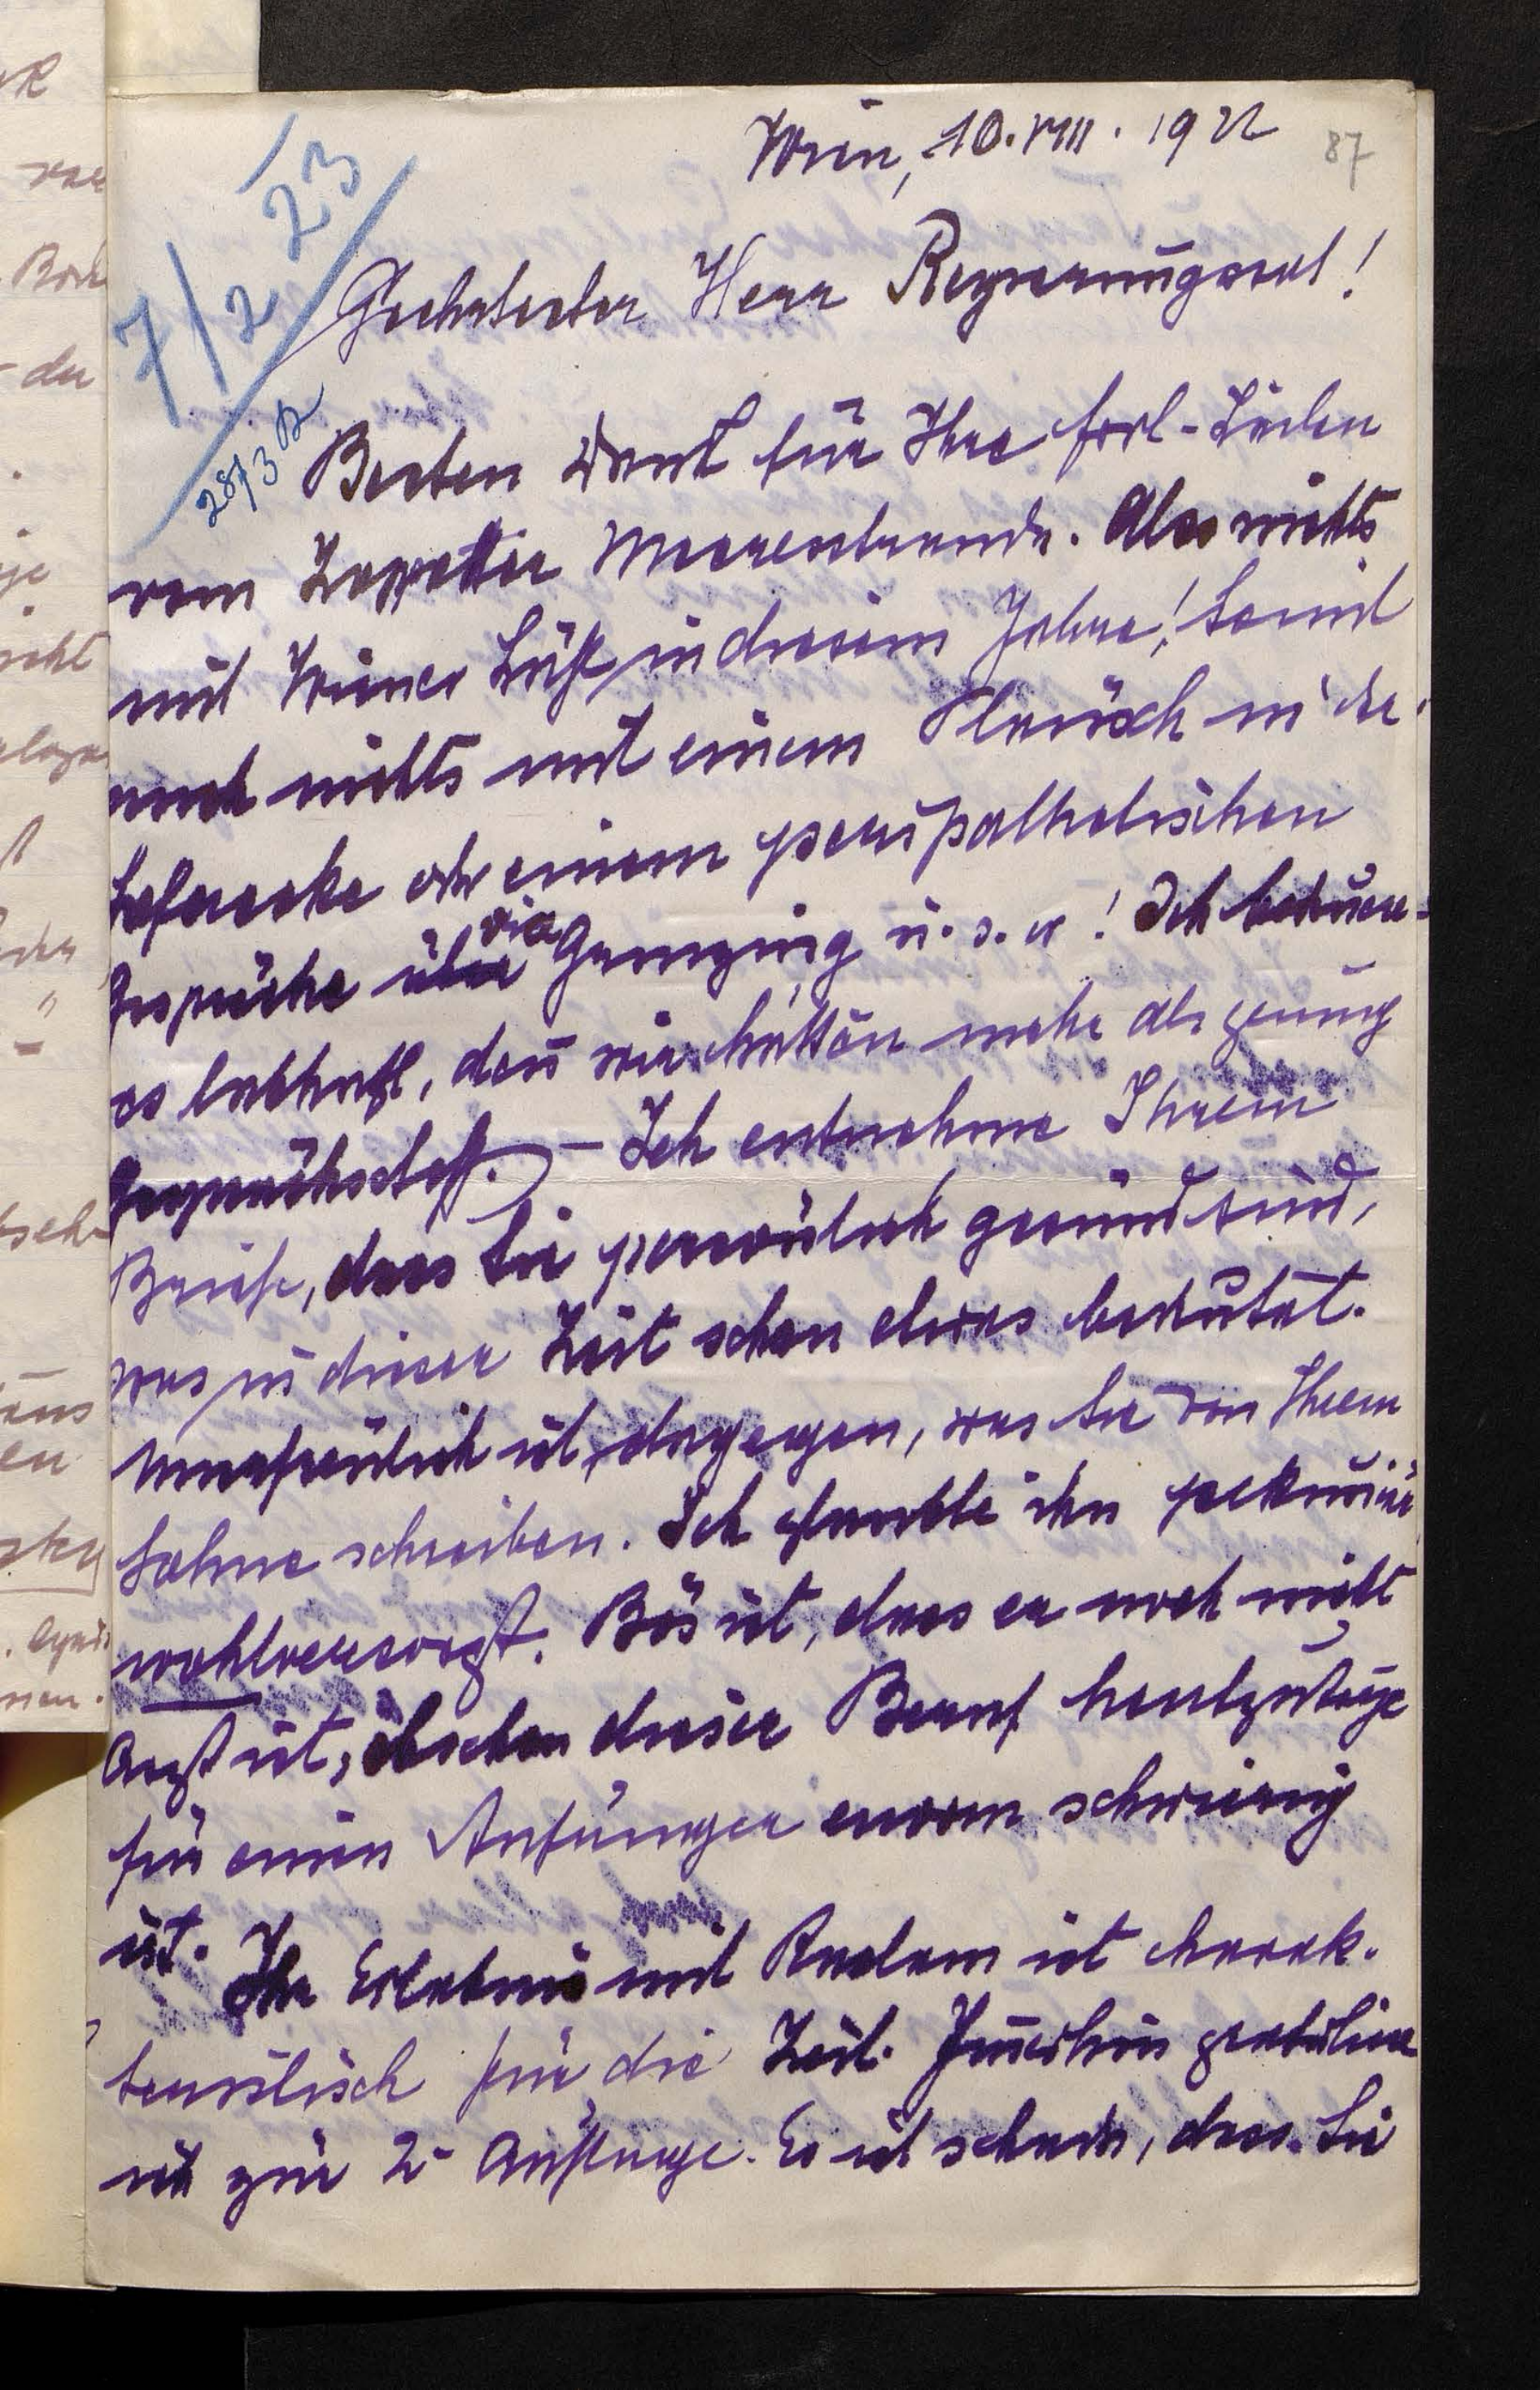 Wien, 10. VIII. 1922
87
7/2 23
28/3 B
Geehrtester Herr Regierungsrat!
Besten Dank für Ihre frdl. Zeilen
vom Zoppotter Meeresstrande. Also nichts
mit Wiener Luft in diesem Jahre! Somit
auch nichts mit einem Plausch in der
Sofaecke oder einem peripathetischen
Gespräche über via Grinzing u. s. w! Ich bedauere
es lebhaft, denn wir hätten mehr als genug
Gesprächsstoff. – Ich entnehme Ihrem
Briefe, dass Sie persönlich gesund sind,
was in dieser Zeit schon etwas bedeutet.
Unerfreulich ist dagegen, was Sie von Ihrem
Sohne schreiben. Ich glaubte ihn pekuniär
wohlversorgt. Bös ist, dass er noch nicht
Arzt ist, obschon dieser Beruf heutzutage
für einen Anfänger enorm schwierig
ist. Ihr Erlebnis mit Reclam ist charak-
teristisch für die Zeit. Immerhin gratuliere
ich zur 2. Auflage. Es ist schade, dass Sie